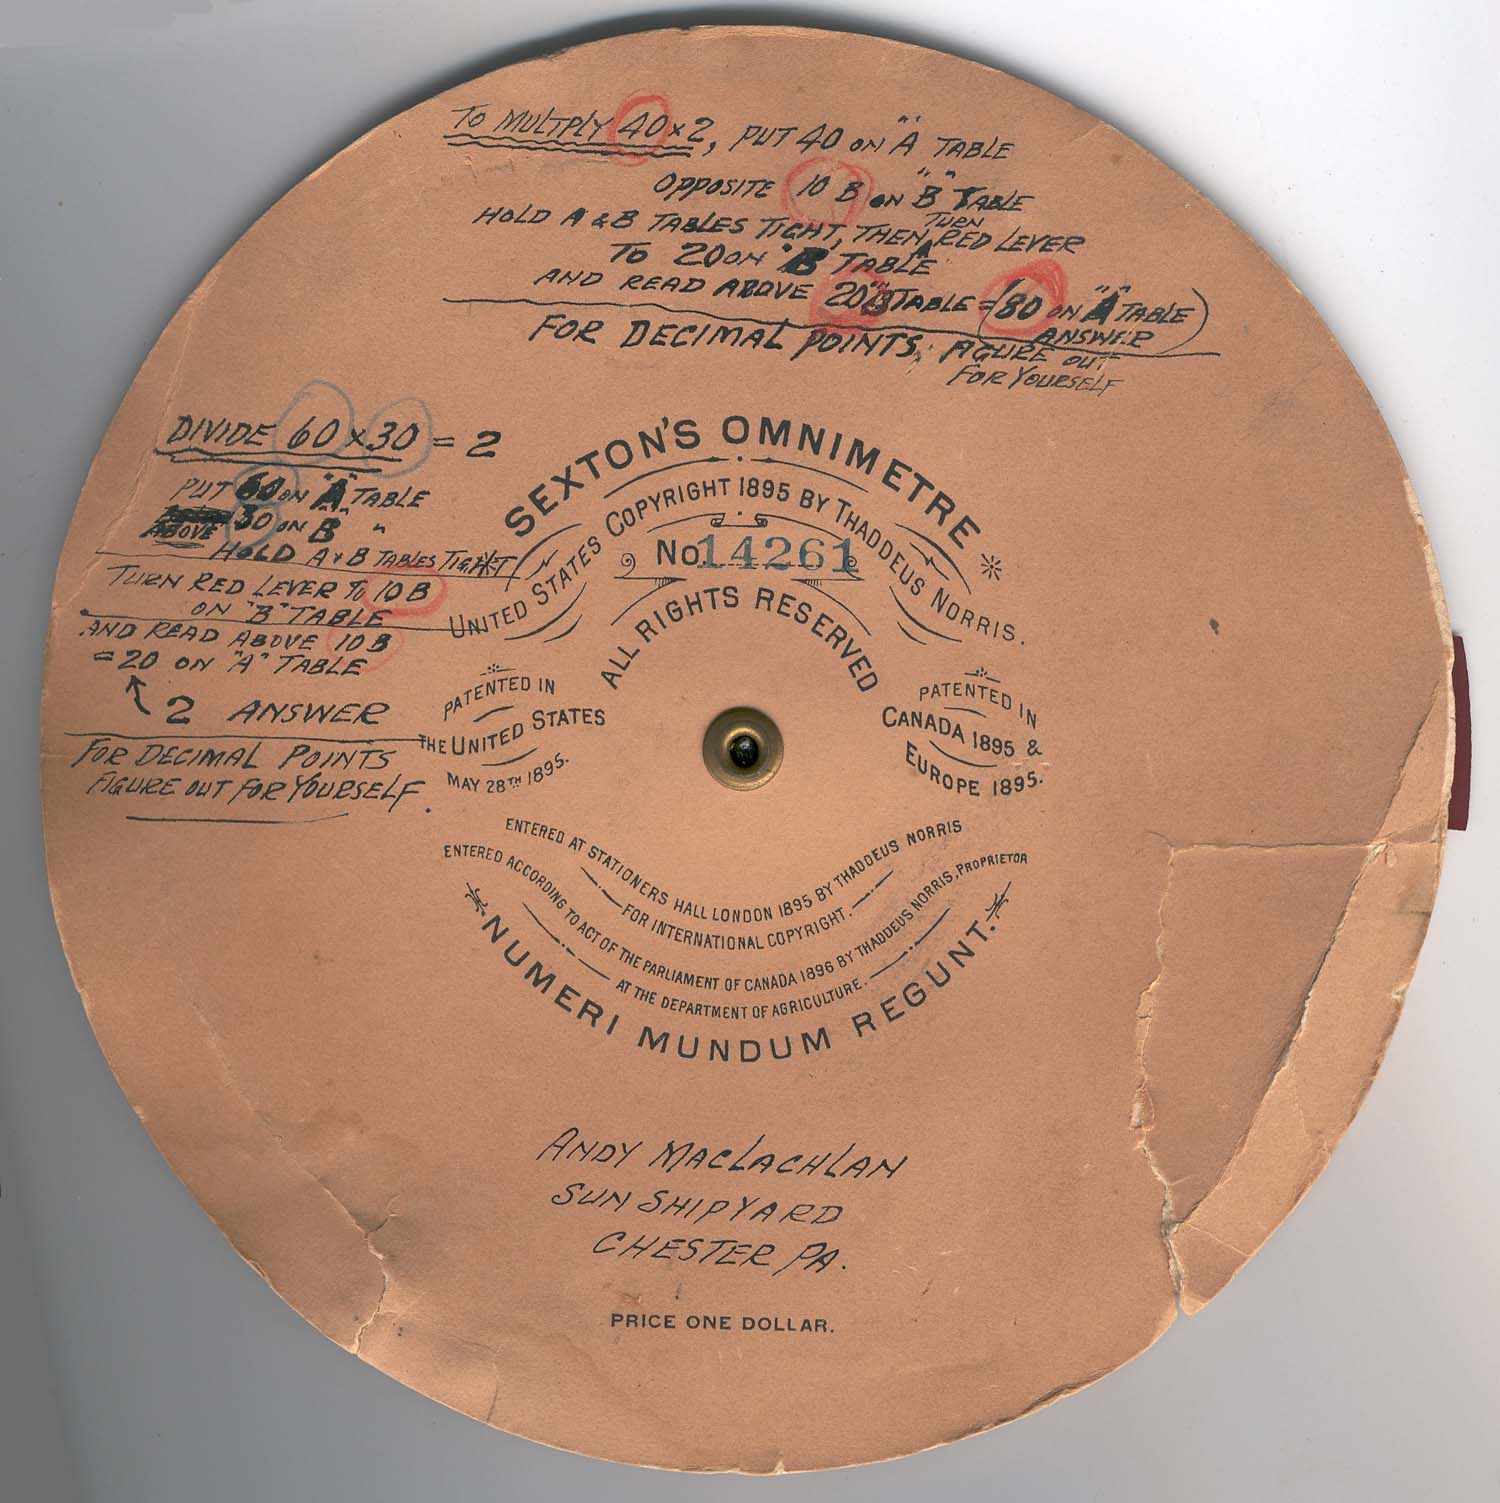 TO MULTPLY 40 x 2, PUT 40 ON "A" TABLE
OPPOSITE 10 B ON "B" TABLE
HOLD A & B TABLES TIGHT, THEN TURN RED LEVER
TO 20 ON "B" TABLE
AND READ ABOVE 20 "B" TABLE = (80 ON "A" TABLE)
ANSWER
FOR DECIMAL POINTS, FIGURE OUT
FOR YOURSELF
DIVIDE 60 x 30 = 2
PUT 60 ON "A" TABLE
ABOVE 30 ON "B" "
HOLD A & B TABLES TIGHT
TURN RED LEVER TO 10 B
ON "B" TABLE
AND READ ABOVE 10 B
= 20 ON "A" TABLE
2 ANSWER
FOR DECIMAL POINTS
FIGURE OUT FOR YOURSELF.
SEXTON'S OMNIMETRE
UNITED STATES COPYRIGHT 1895 BY THADDEUS NORRIS.
No 14261
ALL RIGHTS RESERVED
PATENTED IN
THE UNITED STATES
MAY 28TH 1895.
PATENTED IN
CANADA 1895 &
EUROPE 1895.
ENTERED AT STATIONERS HALL LONDON 1895 BY THADDEUS NORRIS
FOR INTERNATIONAL COPYRIGHT.
ENTERED ACCORDING TO ACT OF THE PARLIAMENT OF CANADA 1896 BY THADDEUS NORRIS, PROPRIETOR
AT THE DEPARTMENT OF AGRICULTURE.
NUMERI MUNDUM REGUNT.
ANDY MACLACHLAN
SUN SHIPYARD
CHESTER PA.
PRICE ONE DOLLAR.